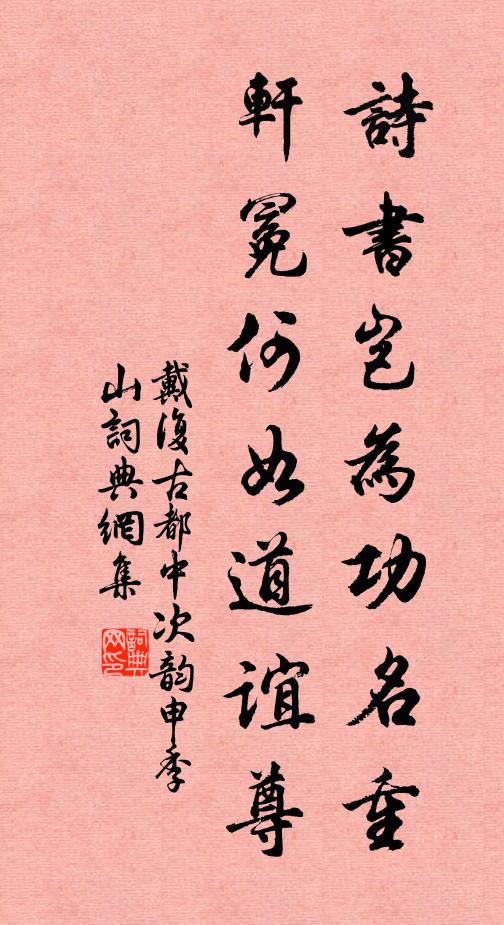 詩書豈為功名重
軒冕何如道誼尊
戴復古都中次韵申季
山詞典網集
詞典網印